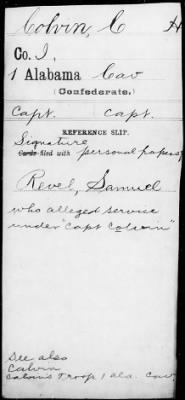 Colvin, C H
Co. I,
1 Alabama Cav
(Confederate.)
Capt. Capt.
REFERENCE SLIP.
Signature
Cards filed with personal papers of
Revel, Samuel
who alleged service
under "Capt Colvin"
See also
Calvin
Calvins Troop 1 Ala. Cav.